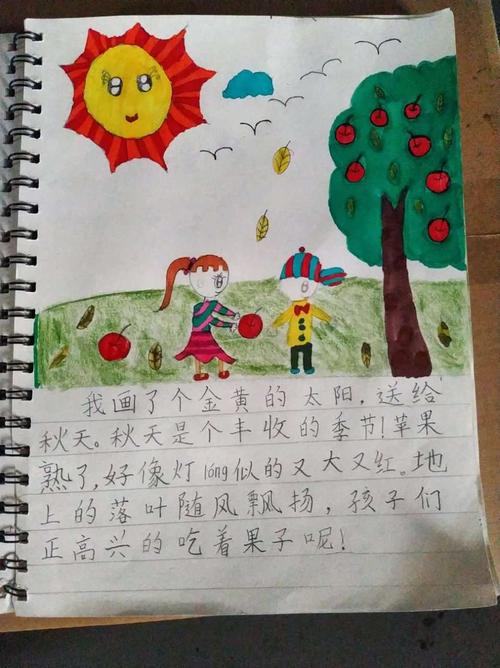 我画了个金黄的太阳，送给
秋天。秋天是个丰收的季节！苹果
熟了，好像灯lóng似的又大又红。地
上的落叶随风飘扬，孩子们
正高兴的吃着果子呢！